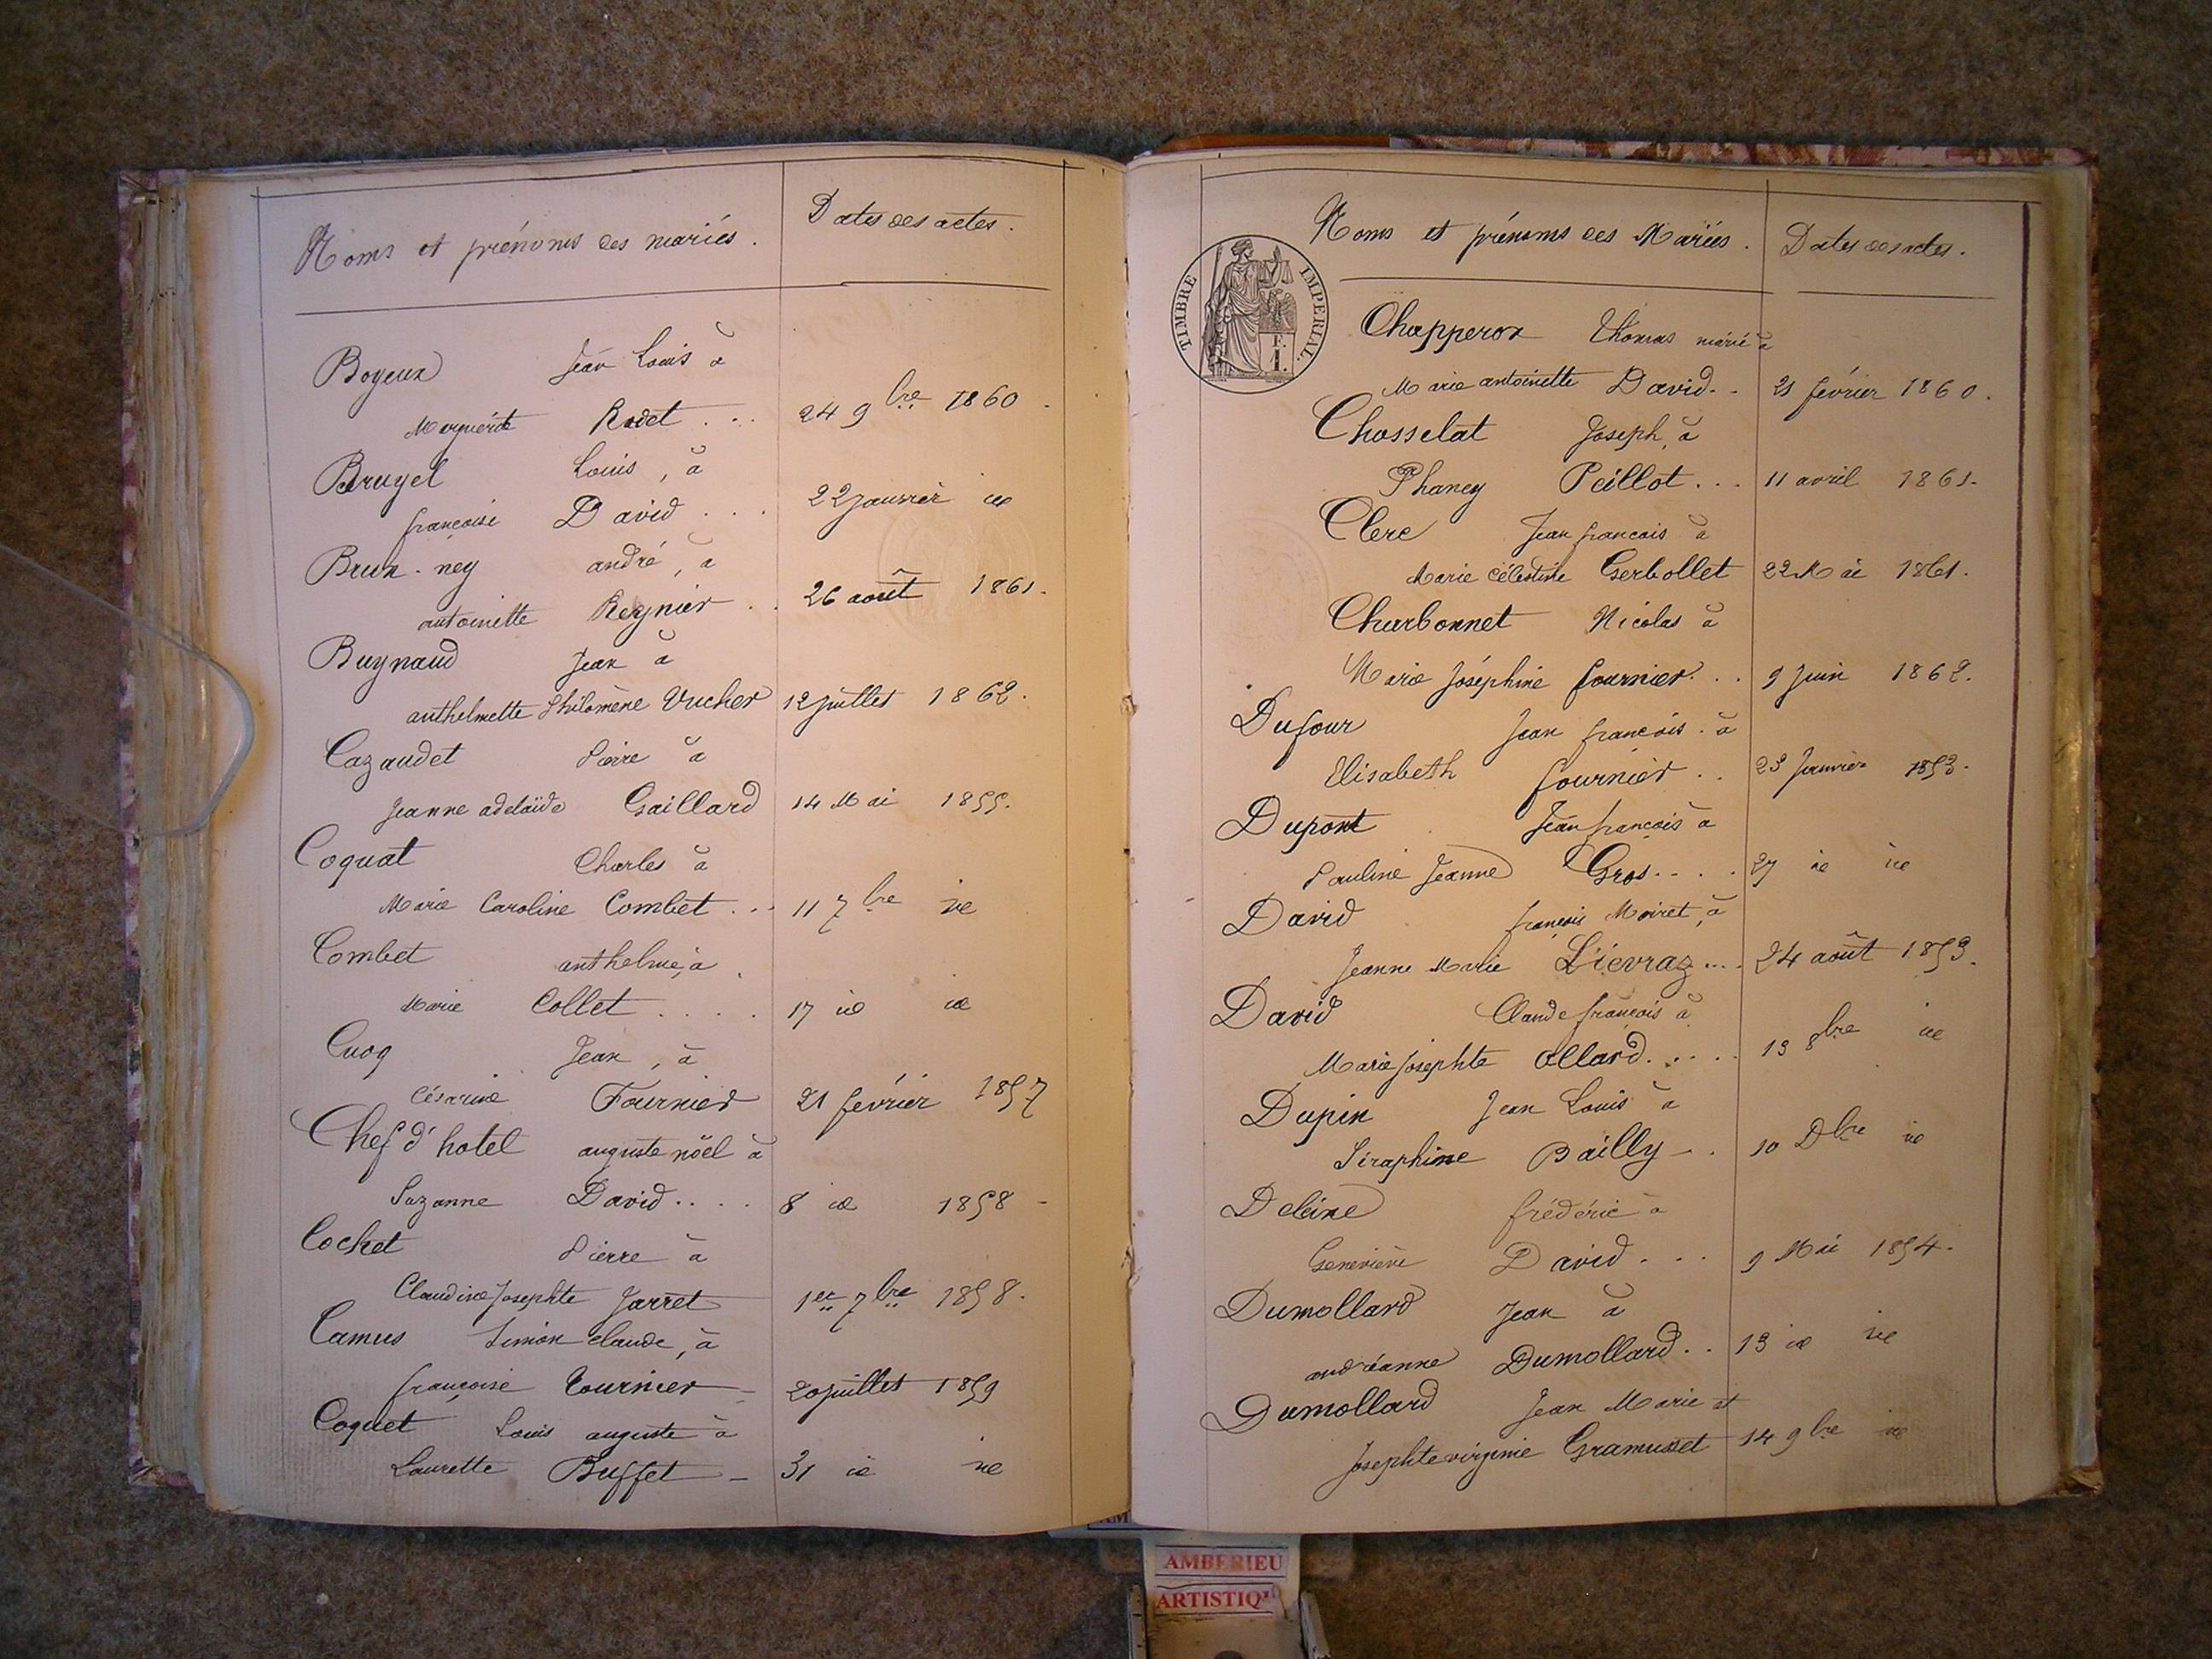 Noms et prénoms des mariés. Dates des actes.
Boyeux Jean Louis à
Marguerite Rodet . . . 24 9bre 1860.
Bruyel Louis, à
françoise David . . . 22 janvier id
Brun-ney andré, à
antoinette Reynier . . 26 août 1861.
Buynaud Jean à
anthelmette Philomène Vucher 12 juillet 1862.
Cazaudet Pierre à
Jeanne adelaïde Gaillard 14 Mai 1855.
Coquat Charles à
Marie Caroline Combet . . . 11 7bre id
Combet anthelme, à
Marie Collet . . . . 17 id id
Cuoq Jean, à
Césarine Fournier 21 février 1857
Chef d'hotel auguste nöel à
Suzanne David . . . . 8 id 1858 -
Cochet Pierre à
Claudine Josephte Jarret 1er 7bre 1858.
Camus Simon claude, à
françoise Tournier - 20 juillet 1859
Coquet Louis auguste à
Laurette Buffet - 31 id id
TIMBRE IMPERIAL.
E. I.
Noms et prénoms des Mariés. Dates des actes.
Chapperon Thomas marié à
Marie antoinette David. . 21 février 1860.
Chosselat Joseph, à
Phaney Peillot . . . 11 avril 1861.
Clerc Jean francois à
Marie Célestine Gerbollet 22 Mai 1861.
Charbonnet Nicolas à
Marie Joséphine fournier . . . 9 Juin 1862.
Dufour Jean françois. à
Elisabeth fournier . . 23 Janvier 1853.
Dupont Jean françois à
Pauline Jeanne Gros . . . . 27 id id
David françois Moiret, à
Jeanne Marie Liévraz . . . . 24 août 1853.
David Claude françois à
Marie Josephte Ollard . . . . . 13 8bre id
Dupin Jean Louis à
Séraphine Bailly - . 10 Dbre id
Deleine frédéric à
Geneviève David . . . 9 Mai 1854.
Dumollard Jean à
andréanne Dumollard . . 13 id id
Dumollard Jean Marie et
Josephte virginie Gramusset 14 9bre id
AMBERIEU
ARTISTIQ